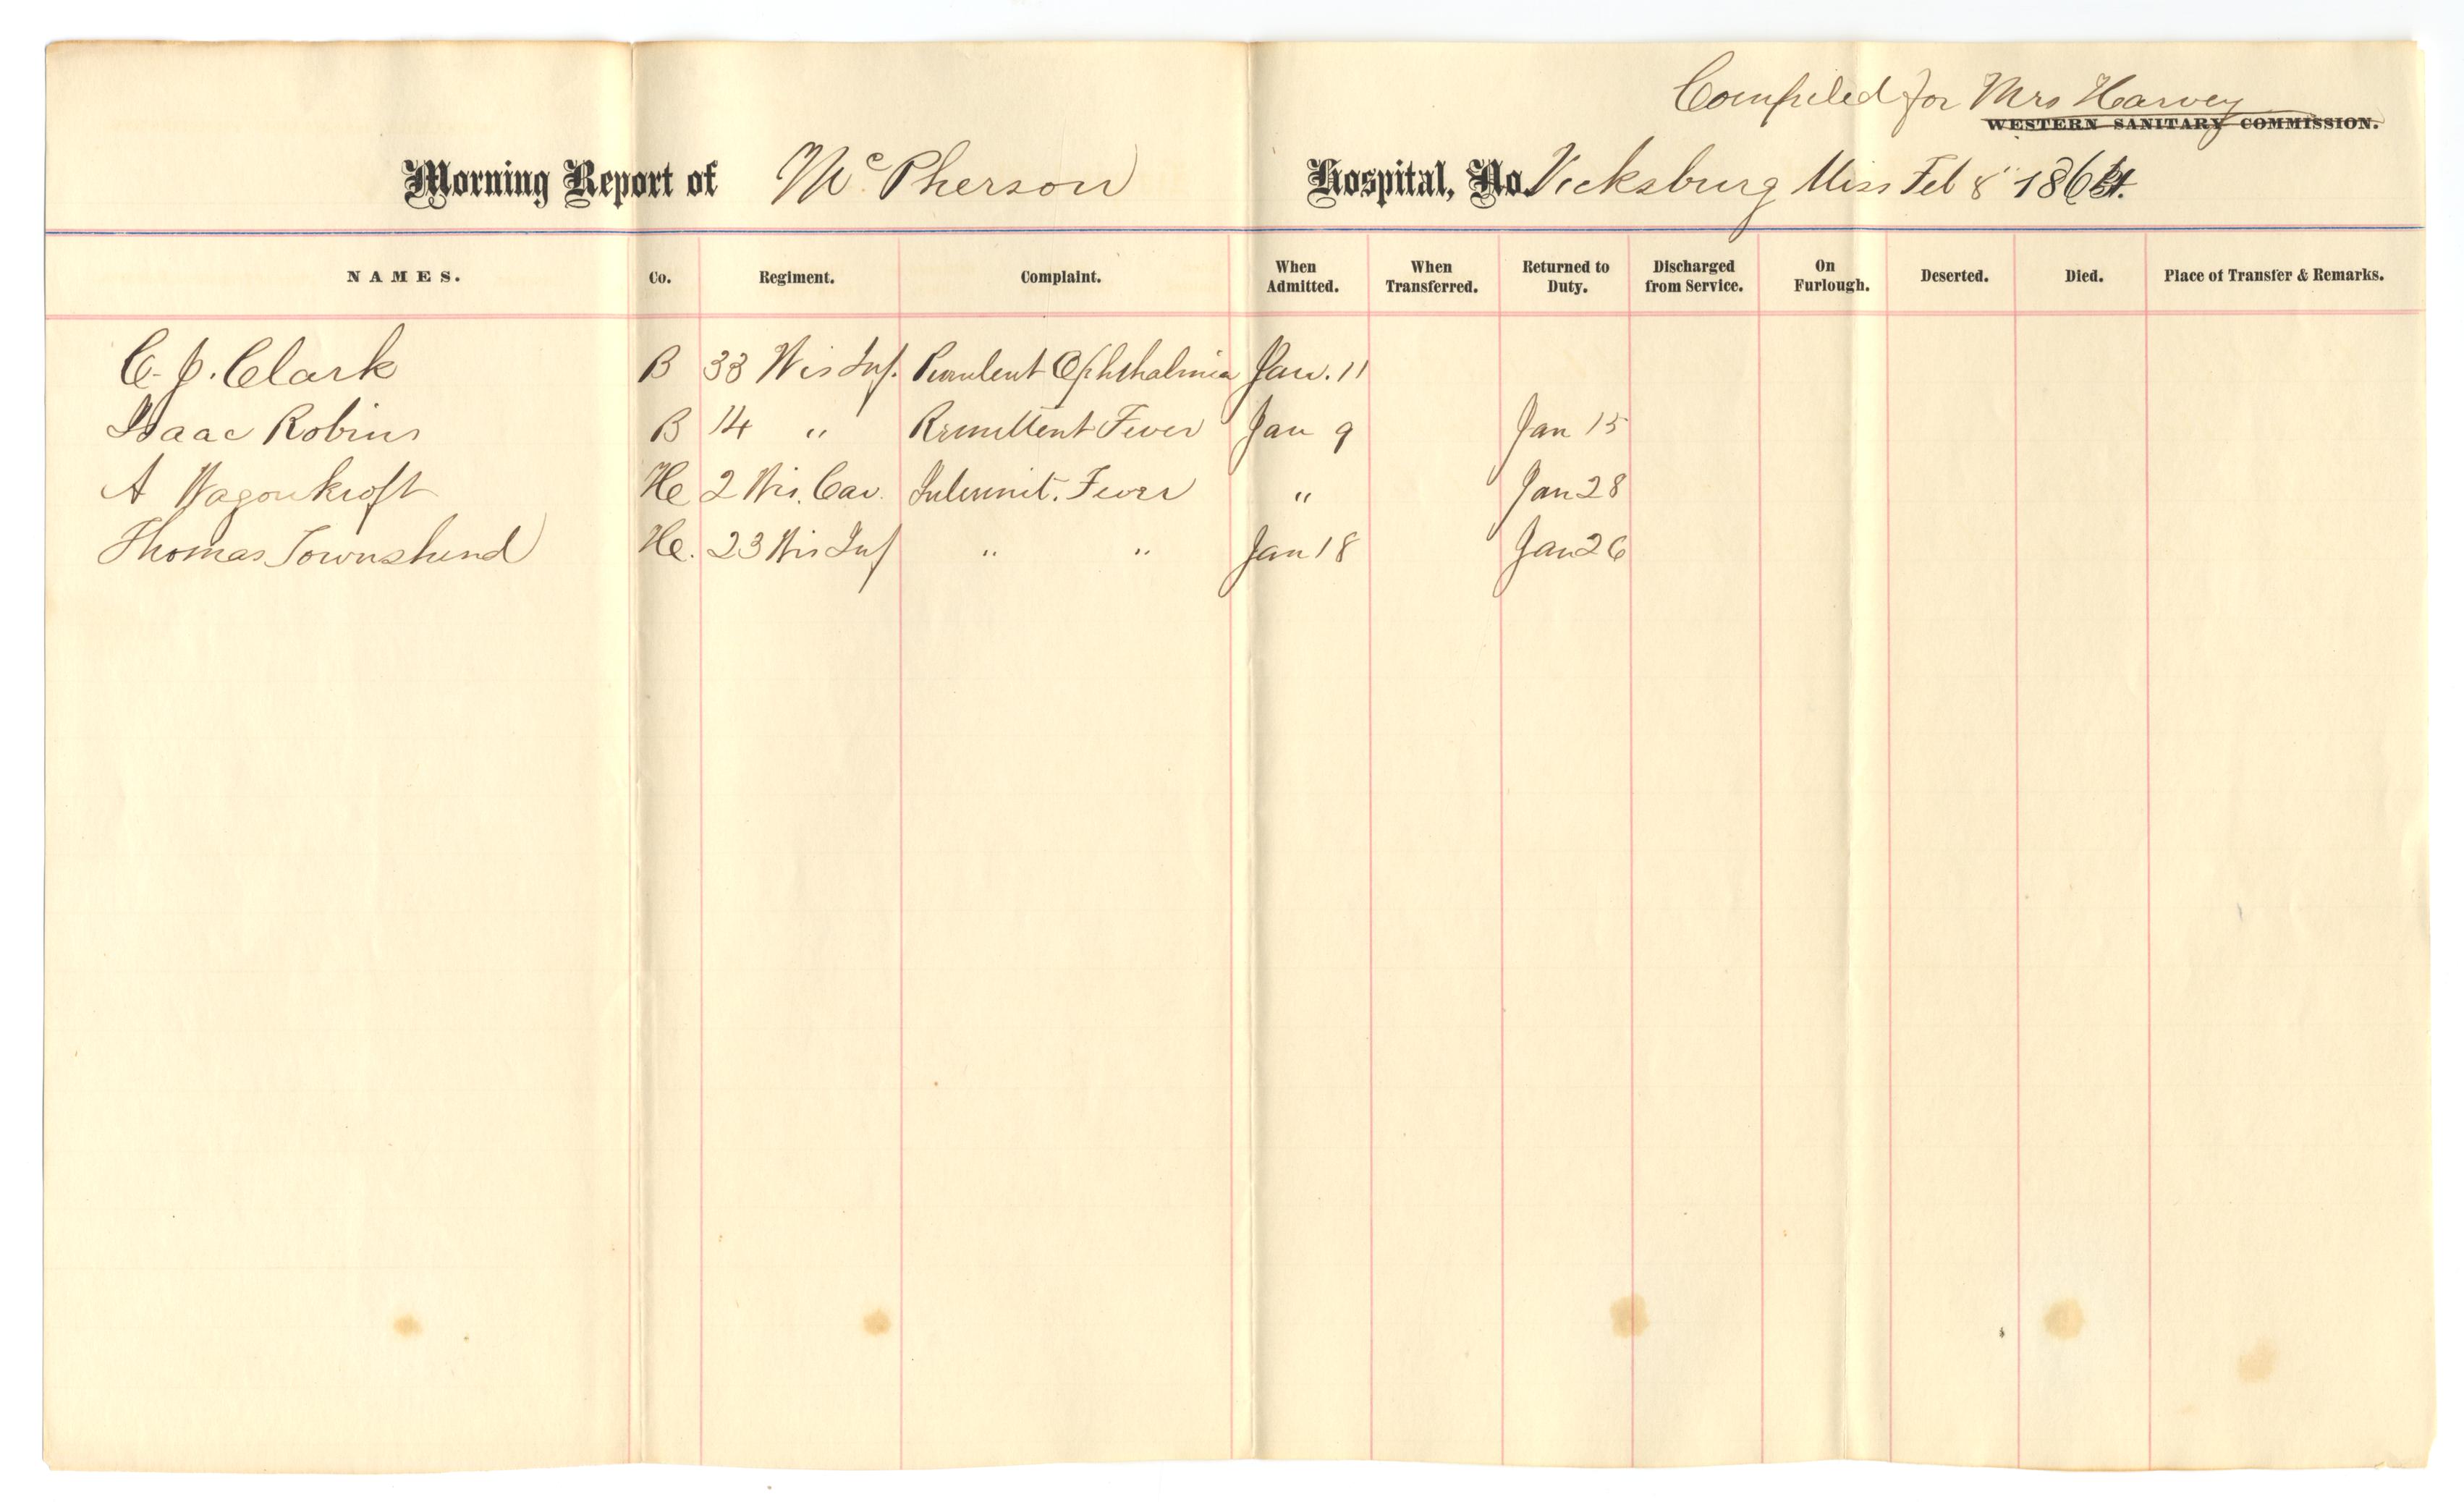 Compiled for Mrs Harvey
WESTERN SANITARY COMMISSION.
Morning Report of McPherson Hospital, No. Vicksburg Miss Feb 8" 1864.
NAMES. Co. Regiment. Complaint. When Admitted. When Transferred. Returned to Duty. Discharged from Service. On Furlough. Deserted. Died. Place of Transfer & Remarks.
C. J. Clark B 33 Wis Inf. Purulent Ophthalmia Jan. 11
Isaac Robins B 14 " Remittent Fever Jan 9 Jan 15
A Wagonkroft 2 Wis. Cav. Intermit. Fever " Jan 28
Thomas Townshend 23 Wis Inf " " Jan 18 Jan 26